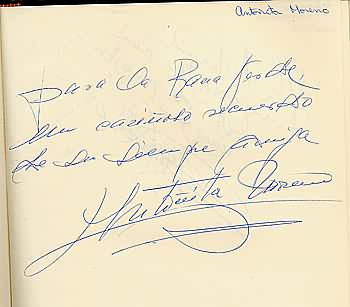 Antoñita Moreno
Para la Rana Verde,
un cariñoso recuerdo
de su siempre amiga
Antoñita Moreno